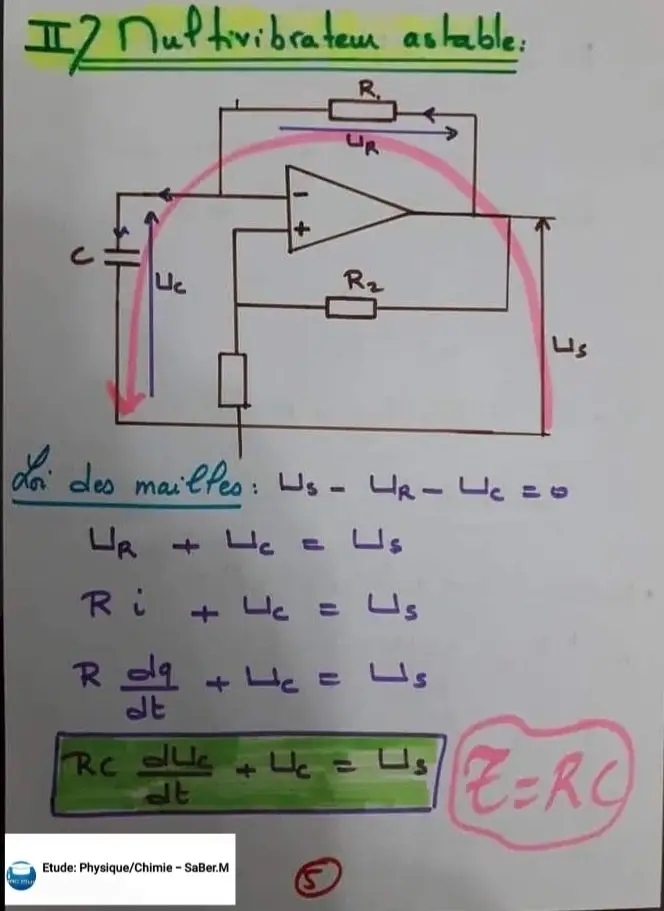 II) Multivibrateur astable:
R1
UR
-
+
C
Uc
R2
Us
Loi des mailles: Us - UR - Uc = 0
UR + Uc = Us
R i + Uc = Us
R dq/dt + Uc = Us
RC dUc/dt + Uc = Us
τ = RC
Etude: Physique/Chimie - SaBer.M
5